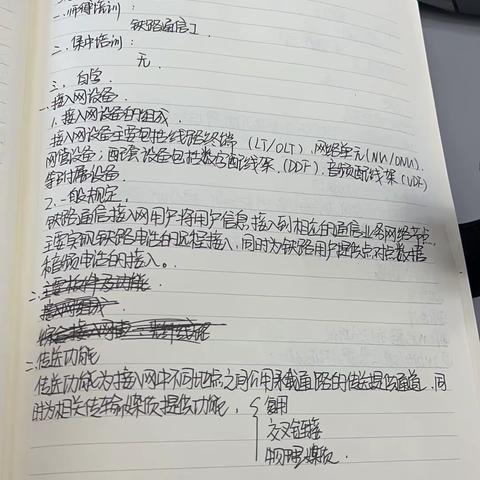 一.师傅培训：
铁路通信工
二.集中培训：
无.
三. 自学
一.接入网设备.
1.接入网设备的组成.
接入网设备主要包括线路终端 (LT/OLT).网络单元(NU/ONU).
网管设备；配套设备包括数字配线架.(DDF).音频配线架(VDF)
等附属设备.
2.一般规定.
铁路通信接入网用户将用户信息接入到相应的通信业务网络节点.
主要实现铁路电话的远程接入，同时为铁路用户提供点对点数据
和音频电话的接入。.
二.主要软件及功能.
接入网组成.
二.传送功能
传送功能为接入网中不同地点之间公用承载通路的传送提供通道.同
时为相关传输媒质提供功能，
复用
交叉链接
物理媒质.